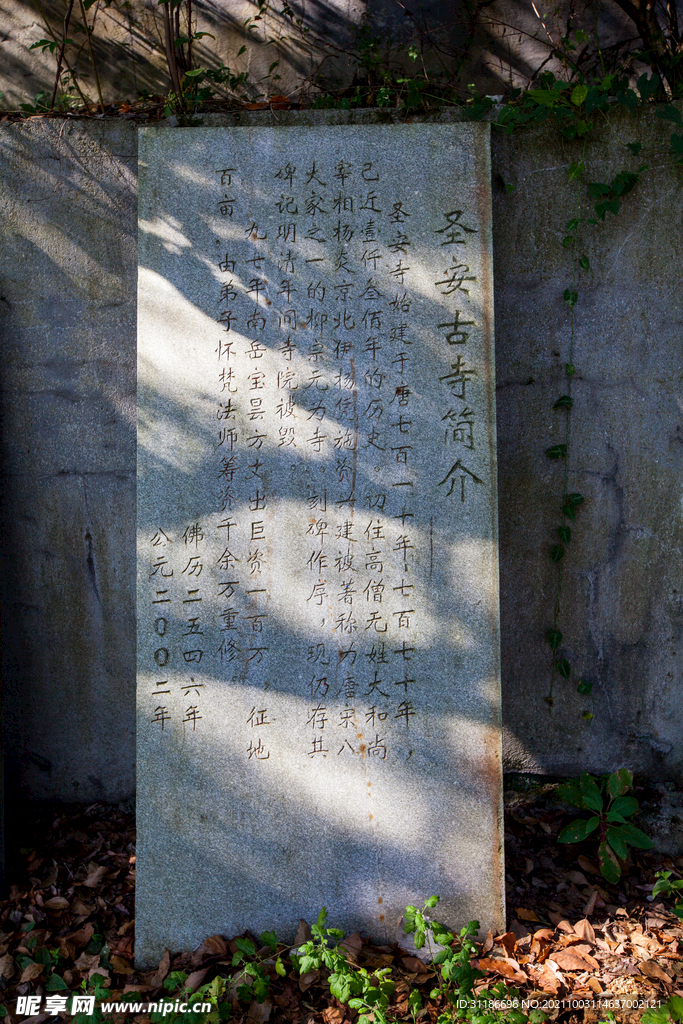 圣安古寺简介
圣安寺始建于唐七百一十年·七百七十年，
己近壹仟叁佰年的历史。初住高僧无姓大和尚
宰相杨炎京北伊杨凭施资兴建被著称为唐宋八
大家之一的柳宗元为寺 刻碑作序，现仍存其
碑记明清年间寺院被毁。
九七年南岳宝昙方丈出巨资一百万，征地
百亩，由弟子怀梵法师筹资千余万重修
佛历二五四六年
公元二00二年
昵享网 www.nipic.cn
ID:31186696 NO:20211003114637002121